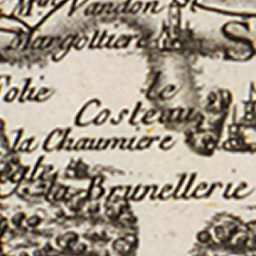 Vandon
Margottiere
S
Folie
le
Costeau
la Chaumiere
la Brunellerie